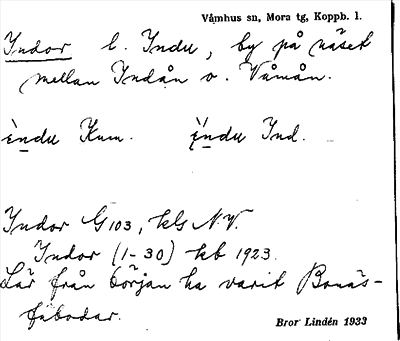 Våmhus sn, Mora tg, Koppb. l.
Indor l. Indu, by på näset
mellan Indån o. Våmån.
ìndu Kum. ìndu Ind.
Indor G 103, kls N.V.
Indor (1-30) kb 1923.
Lär från början ha varit Bonäs-
fäbodar.
Bror Lindén 1933